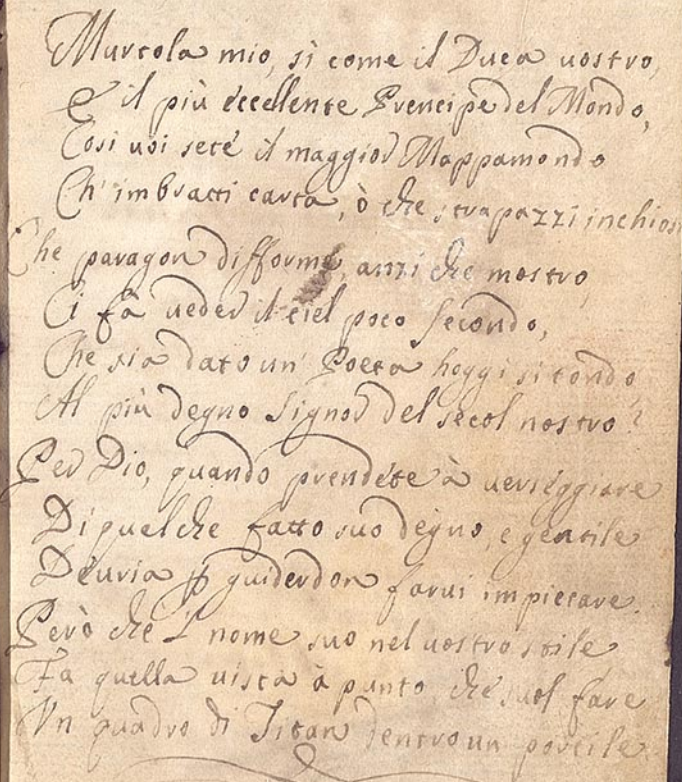 Murtola mio, sì come il Duca uostro,
E' il più eccellente Prencipe del Mondo,
Cosi uoi sete il maggior Mappamondo
Ch' imbratti carta, ò che strapazzi inchios
Che paragon difforme, anzi che mostro,
Ci fà ueder il ciel poco secondo,
Che sia dato un' Poeta hoggi si tondo
Al più degno Signor del secol nostro?
Per Dio, quando prendete à uerseggiare
Di qualche fatto suo degno, e gentile
Deuria p guiderdon farui impiccare.
Però che l' nome suo nel uostro stile,
Fa quella uista à punto, che suol fare
Vn quadro di Titian dentro un porcile